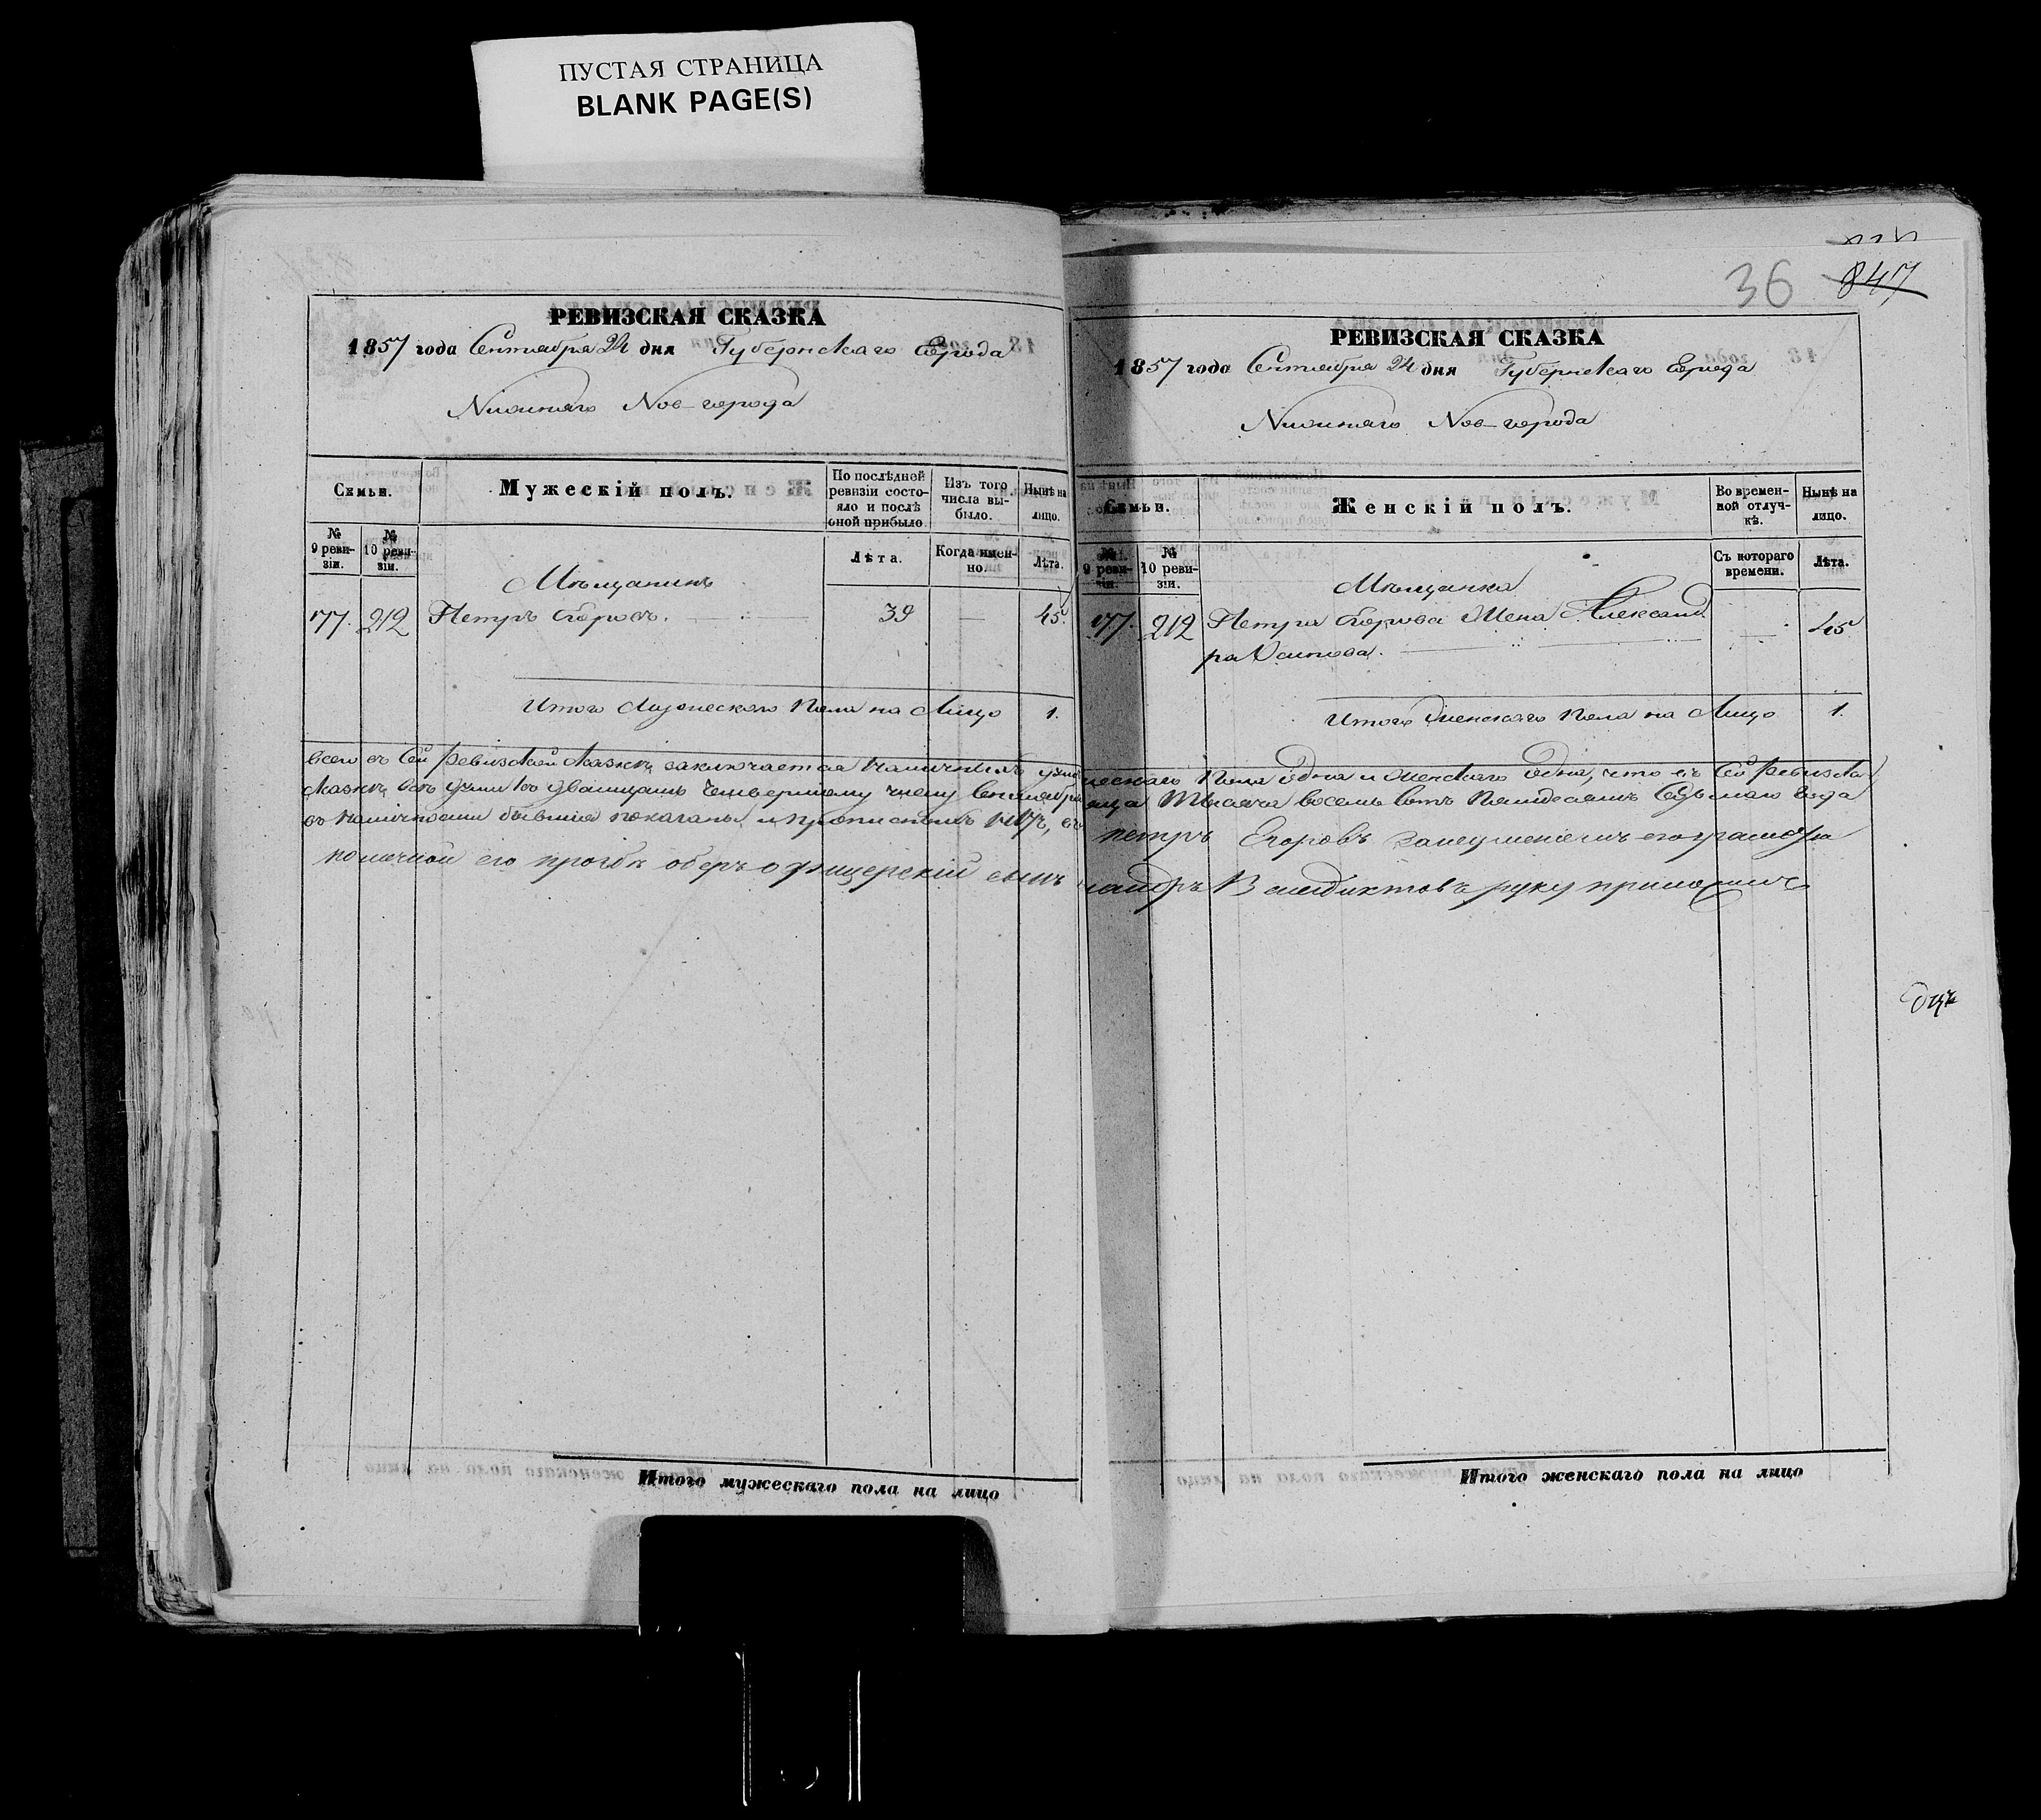 ПУСТАЯ СТРАНИЦА
BLANK PAGE(S)
РЕВИЗСКАЯ СКАЗКА
1857 года Сентября 24 дня Губернскаго Города
Нижняго Нов-города
Семьи.
Мужескій полъ.
По послѣдней ревизіи состояло и послѣ оной прибыло.
Изъ того числа выбыло.
Нынѣ на лицо.
№ 9 ревизіи.
№ 10 ревизіи.
Лѣта.
Когда именно.
Лѣта.
Мѣщанинъ
177. 212 Петръ Егоровъ. 39 — 45.
Итого Мужескаго Пола на Лицо 1.
36
847
РЕВИЗСКАЯ СКАЗКА
1857 года Сентября 24 дня Губернскаго Города
Нижняго Нов-города
Семьи.
Женскій полъ.
Во временной отлучкѣ.
Нынѣ на лицо.
№ 9 ревизіи.
№ 10 ревизіи.
Съ котораго времени.
Лѣта.
Мѣщанка
177. 212 Петра Егорова Жена Александ
ра Осипова. — 45
Итого Женскаго Пола на Лицо 1.
всего въ Сей Ревизской Сказкѣ заключается Наличныхъ душъ ческаго Пола Одна и Женскаго Одна, что въ Сей Ревизской
Сказкѣ всѣ души къ двадцать Четвертому числу Сентября Тысяча восемь сотъ Пятьдесятъ Седьмаго Года
въ наличности бывшія показаны и прописныхъ нѣтъ, въ Петръ Егоровъ занеумѣніемъ его грамотѣ по
личной его прозбѣ оберъ офицерскій сынъ Венедиктовъ руку приложилъ
Итого мужескаго пола на лицо
Итого женскаго пола на лицо